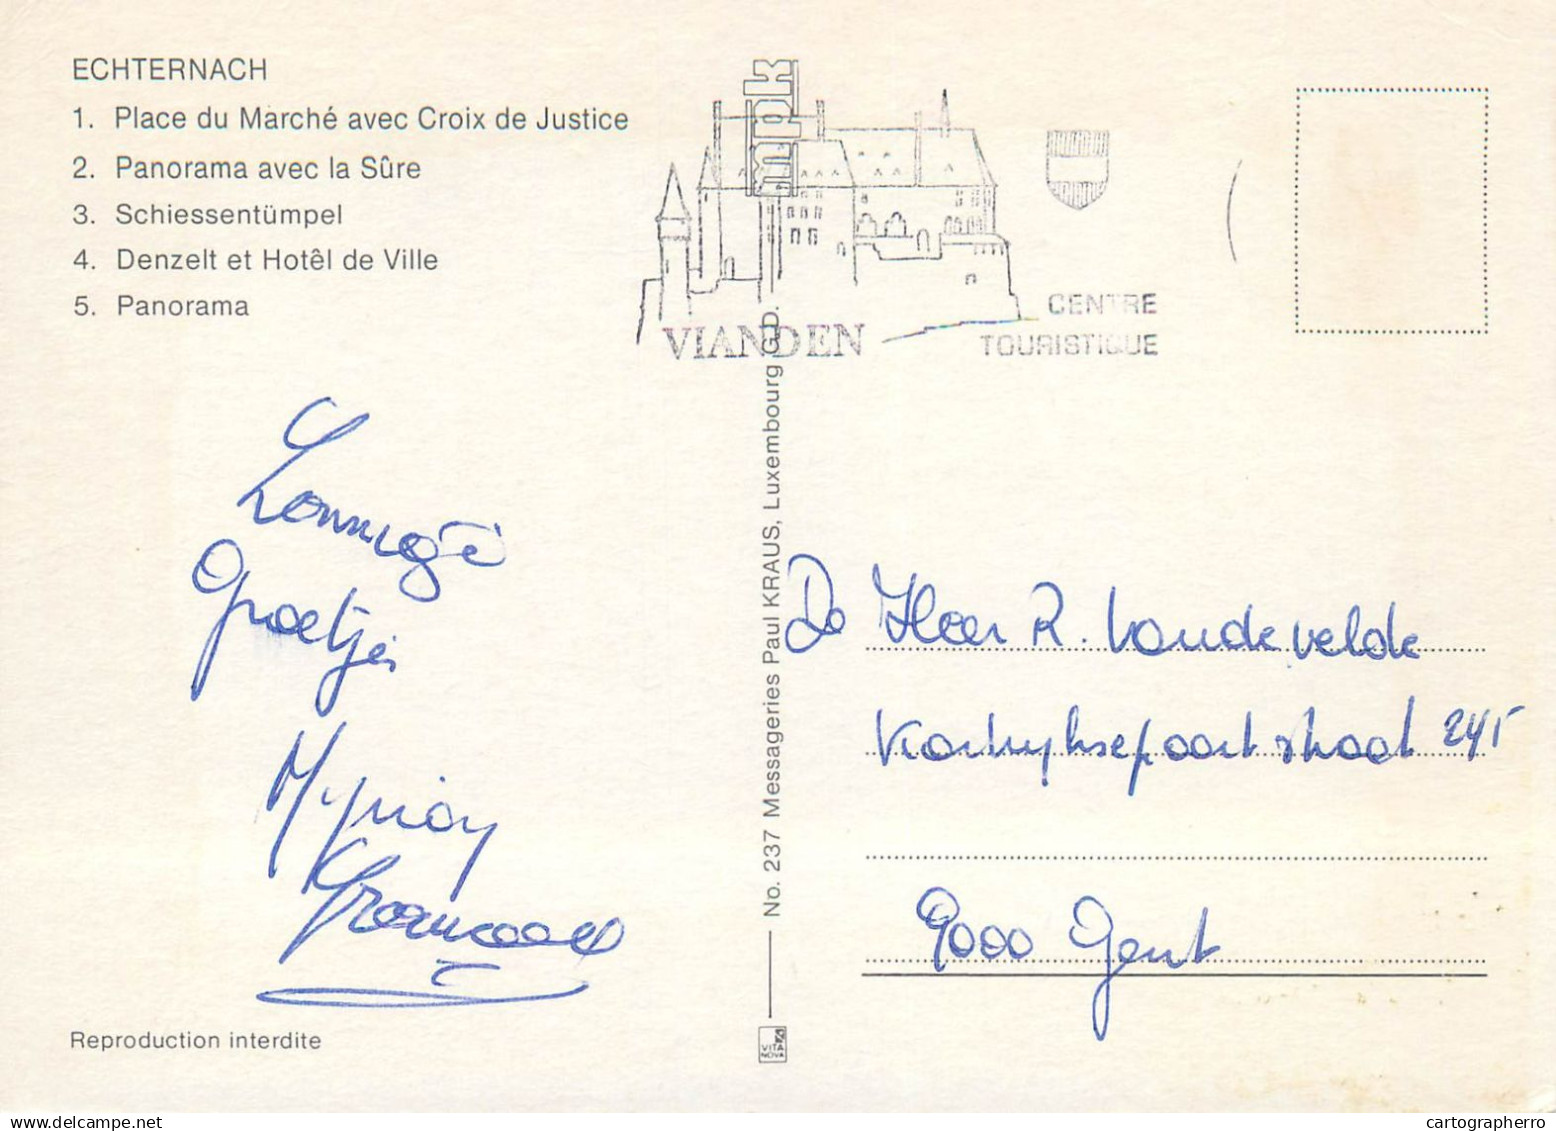 ECHTERNACH
1. Place du Marché avec Croix de Justice
2. Panorama avec la Sûre
3. Schiessentümpel
4. Denzelt et Hotêl de Ville
5. Panorama
mpk
VIANDEN
CENTRE
TOURISTIQUE
Zonnige
Groetjes
No. 237 Messageries Paul KRAUS, Luxembourg G.D.
De Heer R. Vandevelde
Kortrijksepoortstraat 241
9000 Gent
Reproduction interdite
VITA
NOVA
cartographerro